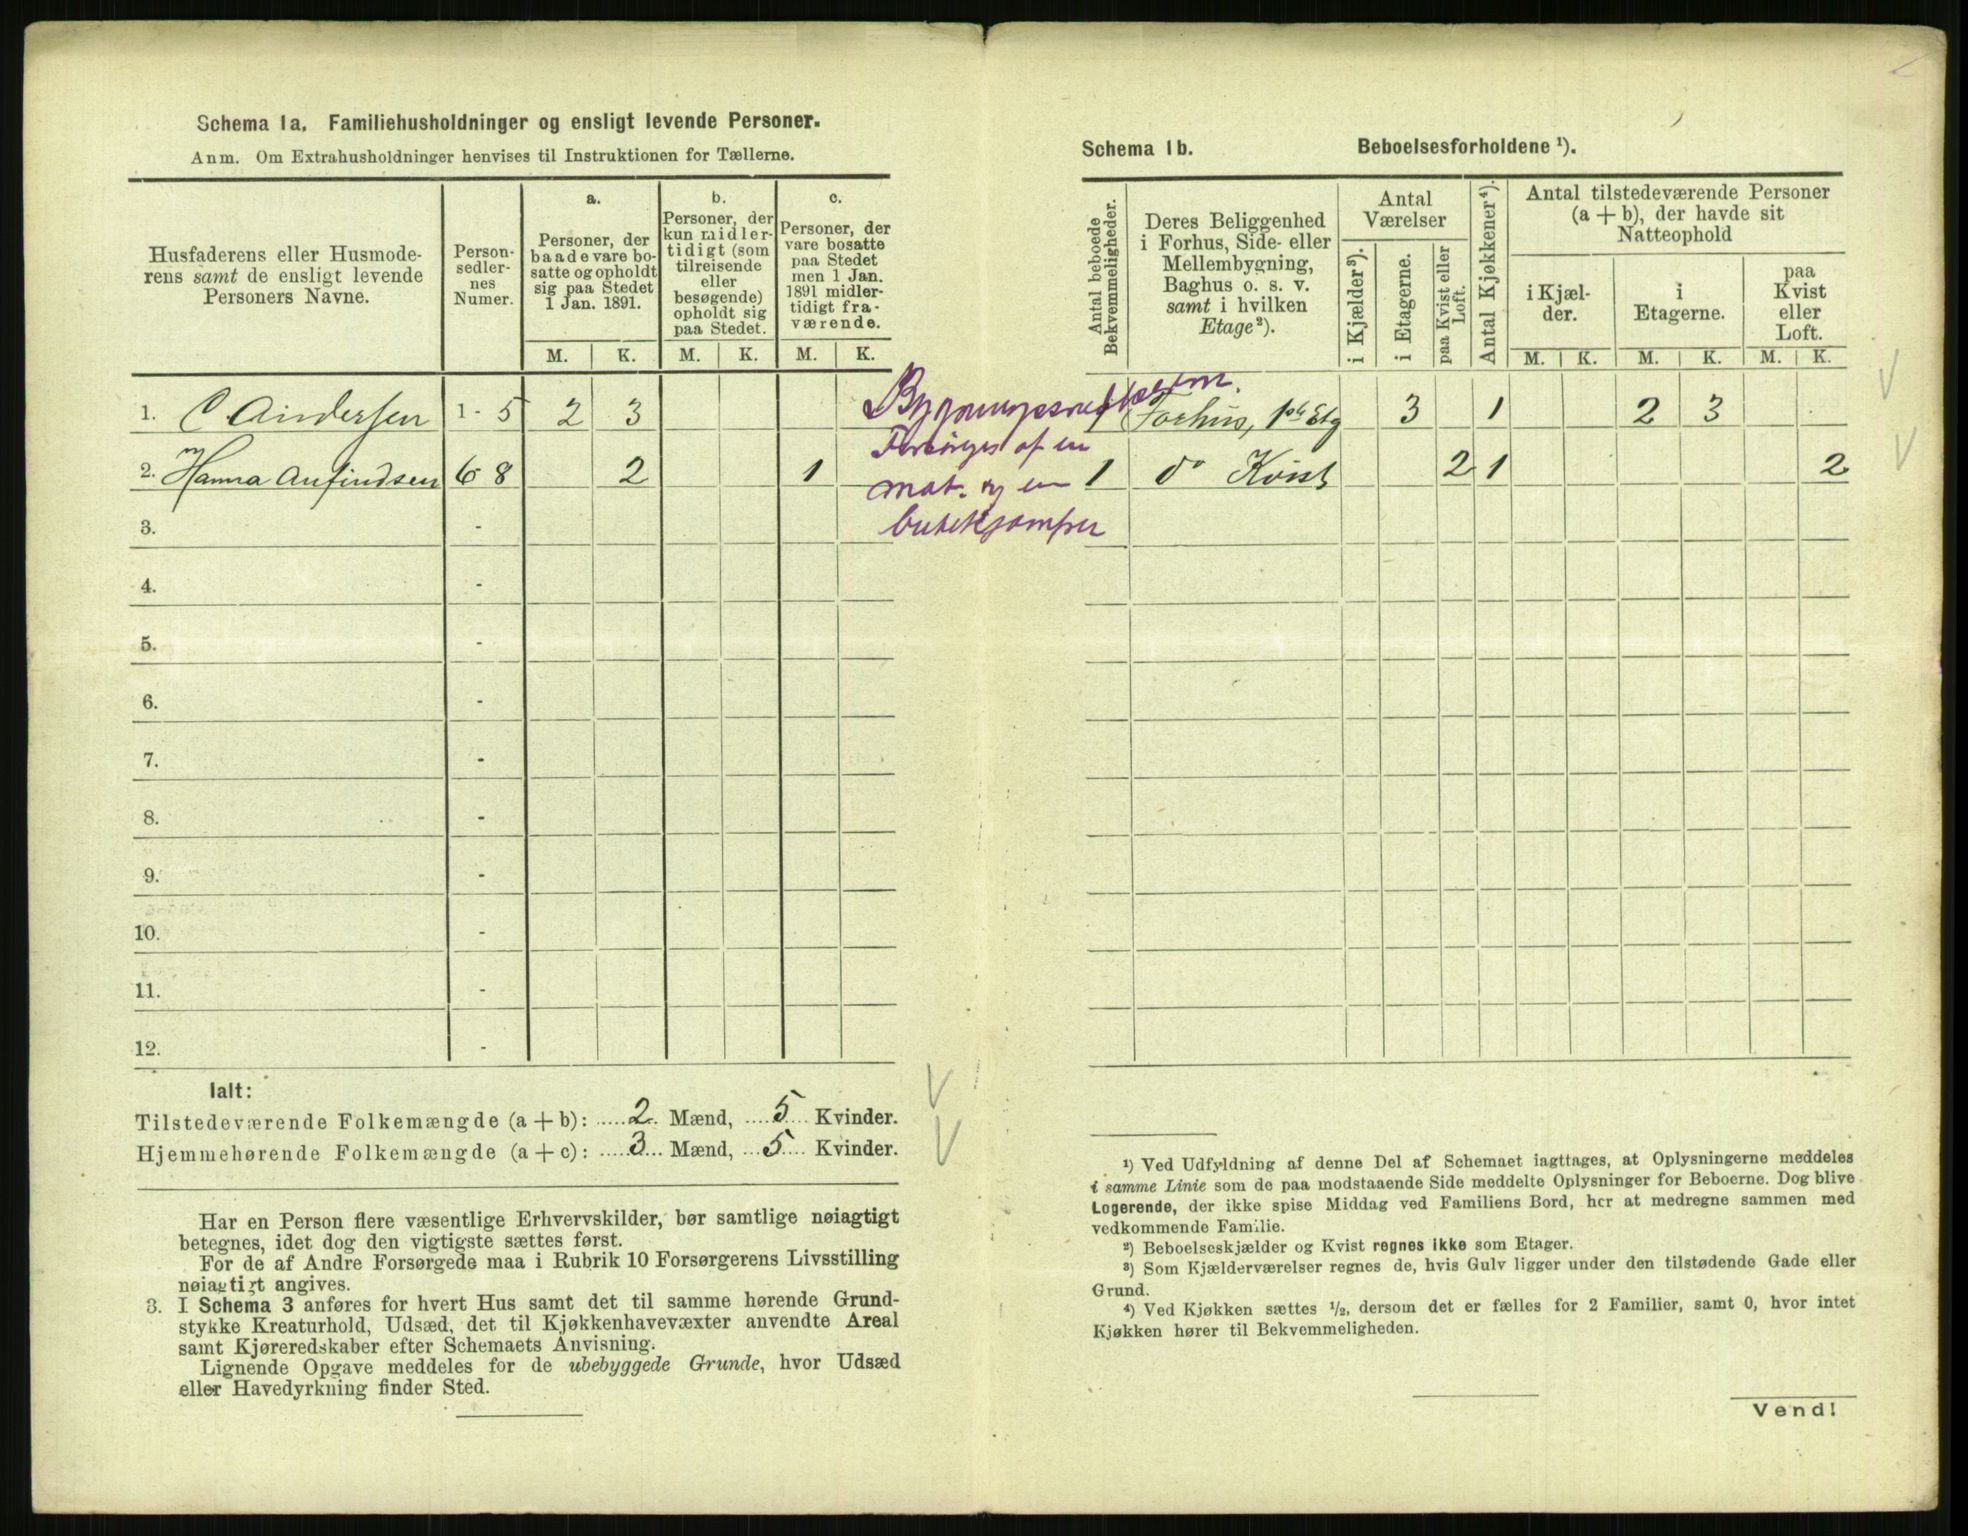 Schema 1a. Familiehusholdninger og ensligt levende Personer.
Anm. Om Extrahusholdninger henvises til Instruktionen for Tællerne.
Husfaderens eller Husmode-
rens samt de ensligt levende
Personers Navne.
Person-
sedler-
nes
Numer.
a.
Personer, der
baade vare bo-
satte og opholdt
sig paa Stedet
1 Jan. 1891.
b.
Personer, der
kun midler-
tidigt (som
tilreisende
eller
besøgende)
opholdt sig
paa Stedet.
c.
Personer, der
vare bosatte
paa Stedet
men 1 Jan.
1891 midler-
tidigt fra-
værende.
M. K. M. K. M. K.
1. C Andersen 1 - 5 2 3
2. Hanna Anfindsen 6 8 2 1
3. -
4. -
5. -
6. -
7. -
8. -
9. -
10. -
11. -
12. -
Forsørges af en
mat. og en
Ialt:
Tilstedeværende Folkemængde (a + b): 2 Mænd, 5 Kvinder.
Hjemmehørende Folkemængde (a + c): 3 Mænd, 5 Kvinder.
Har en Person flere væsentlige Erhvervskilder, bør samtlige nøiagtigt
betegnes, idet dog den vigtigste sættes først.
For de af Andre Forsørgede maa i Rubrik 10 Forsørgerens Livsstilling
nøiagtigt angives.
3. I Schema 3 anføres for hvert Hus samt det til samme hørende Grund-
stykke Kreaturhold, Udsæd, det til Kjøkkenhavevæxter anvendte Areal
samt Kjøreredskaber efter Schemaets Anvisning.
Lignende Opgave meddeles for de ubebyggede Grunde, hvor Udsæd
eller Havedyrkning finder Sted.
Schema 1b. Beboelsesforholdene ¹).
Antal beboede
Bekvemmeligheder.
Deres Beliggenhed
i Forhus, Side- eller
Mellembygning,
Baghus o. s. v.
samt i hvilken
Etage ²).
Antal
Værelser
i Kjælder ³).
i Etagerne.
paa Kvist eller
Loft.
Antal Kjøkkener ⁴).
Antal tilstedeværende Personer
(a + b), der havde sit
Natteophold
i Kjæl-
der.
i
Etagerne.
paa
Kvist
eller
Loft.
M. K. M. K. M. K.
1 Forhus, 1ste Etg 3 1 2 3
1 do Kvist 2 1 2
¹) Ved Udfyldning af denne Del af Schemaet iagttages, at Oplysningerne meddeles
i samme Linie som de paa modstaaende Side meddelte Oplysninger for Beboerne. Dog blive
Logerende, der ikke spise Middag ved Familiens Bord, her at medregne sammen med
vedkommende Familie.
²) Beboelseskjælder og Kvist regnes ikke som Etager.
³) Som Kjælderværelser regnes de, hvis Gulv ligger under den tilstødende Gade eller
Grund.
⁴) Ved Kjøkken sættes ½, dersom det er fælles for 2 Familier, samt 0, hvor intet
Kjøkken hører til Bekvemmeligheden.
Vend!